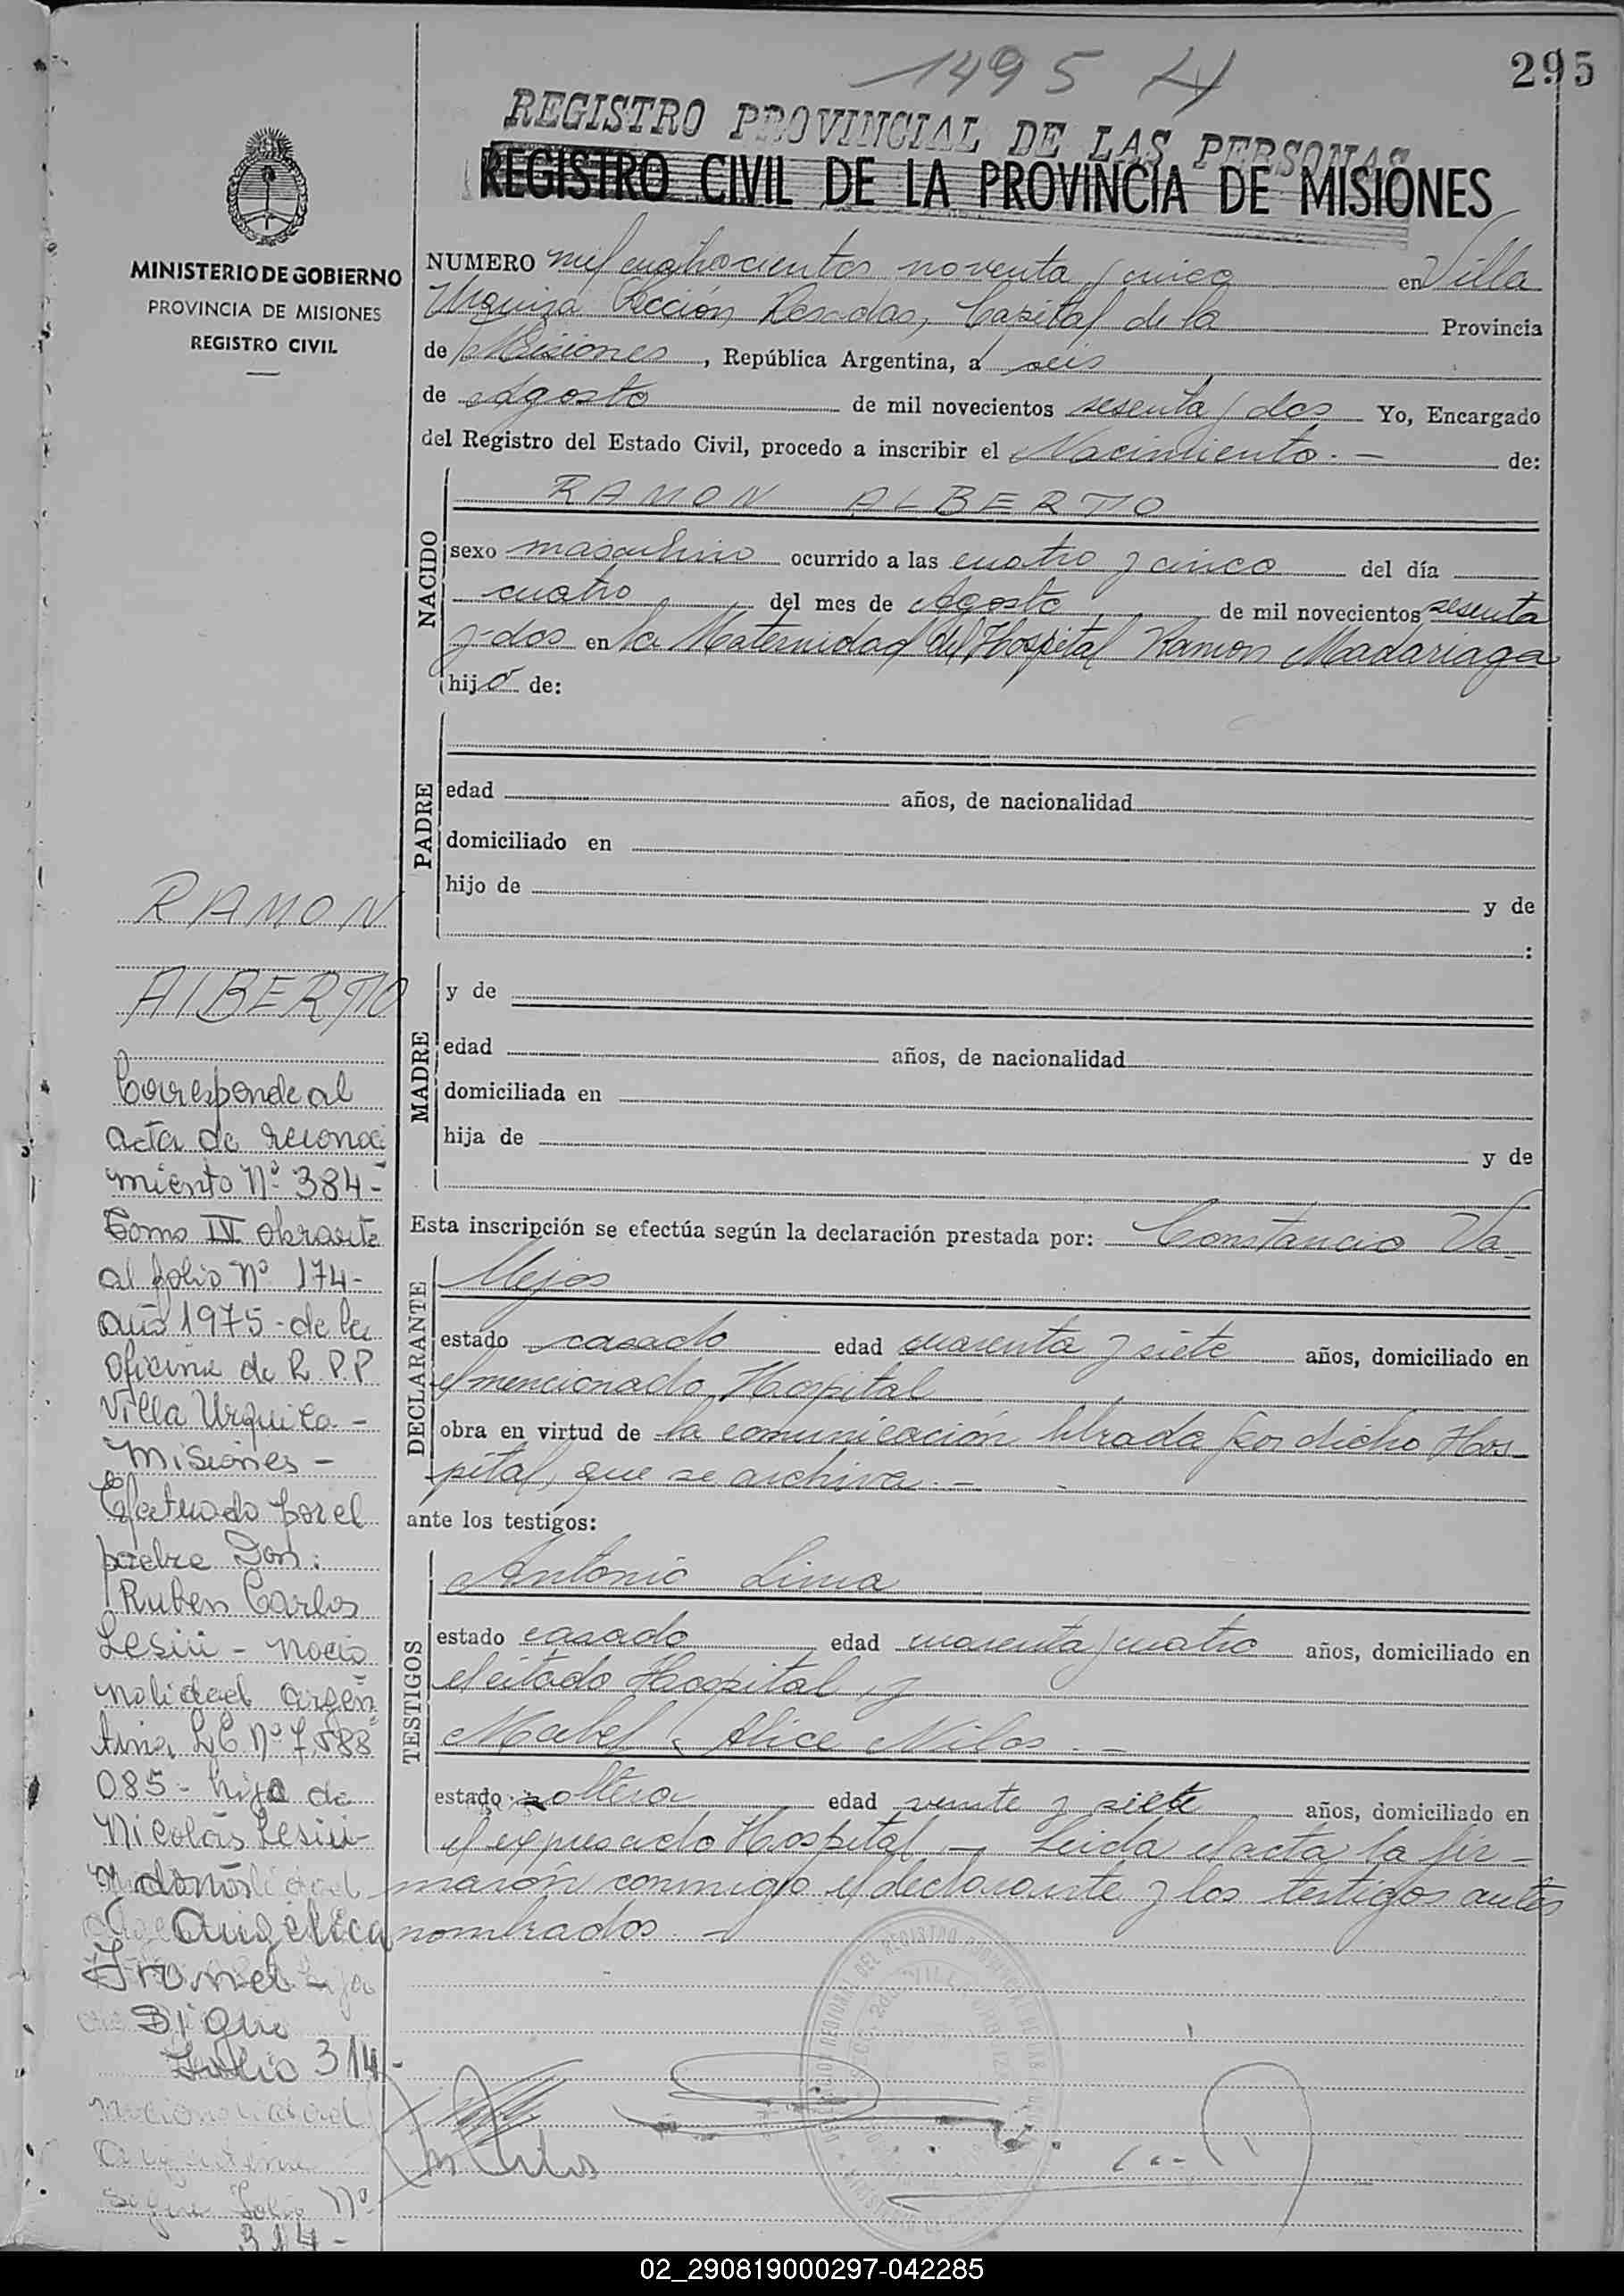 1495
295
REGISTRO PROVINCIAL DE LAS PERSONAS
REGISTRO CIVIL DE LA PROVINCIA DE MISIONES
MINISTERIO DE GOBIERNO
PROVINCIA DE MISIONES
REGISTRO CIVIL
NUMERO mil cuatrocientos noventa y cinco en Villa
Urquiza Sección Posadas, Capital de la Provincia
de Misiones, República Argentina, a seis
de Agosto de mil novecientos sesenta y dos Yo, Encargado
del Registro del Estado Civil, procedo a inscribir el Nacimiento.- de:
NACIDO
RAMON ALBERTO
sexo masculino ocurrido a las cuatro y cinco del día
cuatro del mes de Agosto de mil novecientos sesenta
y dos en la Maternidad del Hospital Ramon Madariaga
hijo de:
PADRE
edad años, de nacionalidad
domiciliado en
hijo de y de
:
MADRE
y de
edad años, de nacionalidad
domiciliada en
hija de y de
Esta inscripción se efectúa según la declaración prestada por: Constancio Va-
DECLARANTE
llejos
estado casado edad cuarenta y siete años, domiciliado en
el mencionado Hospital
obra en virtud de la comunicación librada por dicho Hos-
pital, que se archiva.-
ante los testigos:
TESTIGOS
Antonio Lima
estado casado edad cuarenta y cuatro años, domiciliado en
el citado Hospital, y
Mabel Alice Milos.-
estado soltera edad veinte y siete años, domiciliado en
el expresado Hospital - Leida el acta la fir-
maron conmigo el declarante y los testigos antes
nombrados.-
RAMON
ALBERTO
Corresponde al
acta de reconoci
miento Nº 384-
Tomo IV obrante
al folio Nº 174-
año 1975-de la
Oficina de R.P.P
Villa Urquiza-
Misiones-
Efectuado por el
padre Don:
Ruben Carlos
Lesiu - nacio
nalidad argen
tina LE Nº 7.588
085- hijo de
Nicolás Lesiu-
y doña
Angélica
Tromel-
Sigue
Folio 314-
nacionalidad
argentina
Sigue Folio Nº
314-
02_290819000297-042285